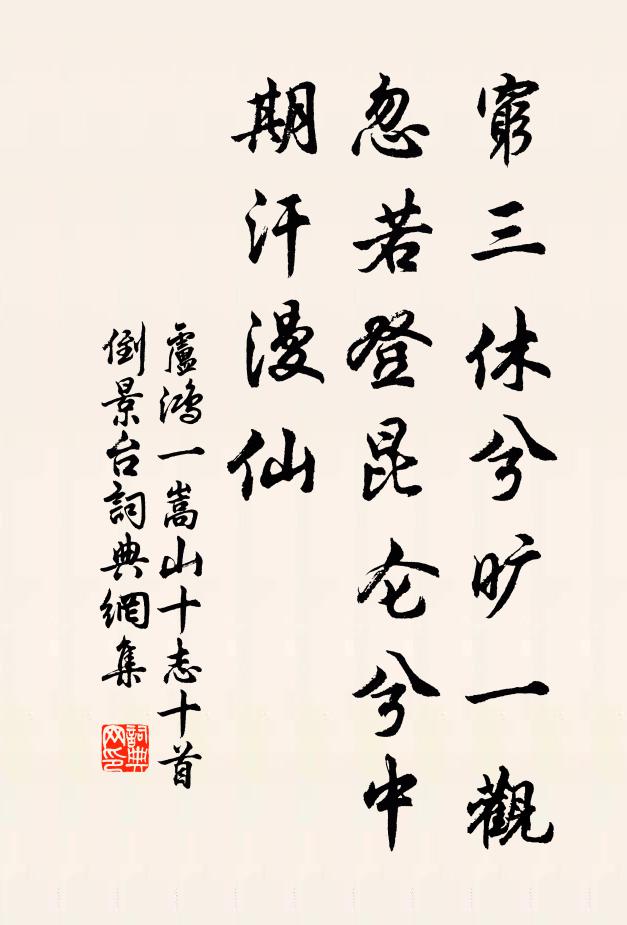 窮三休兮旷一觀
忽若登昆仑兮中
期汗漫仙
盧鴻一嵩山十志十首
倒景台詞典網集
詞典
网印